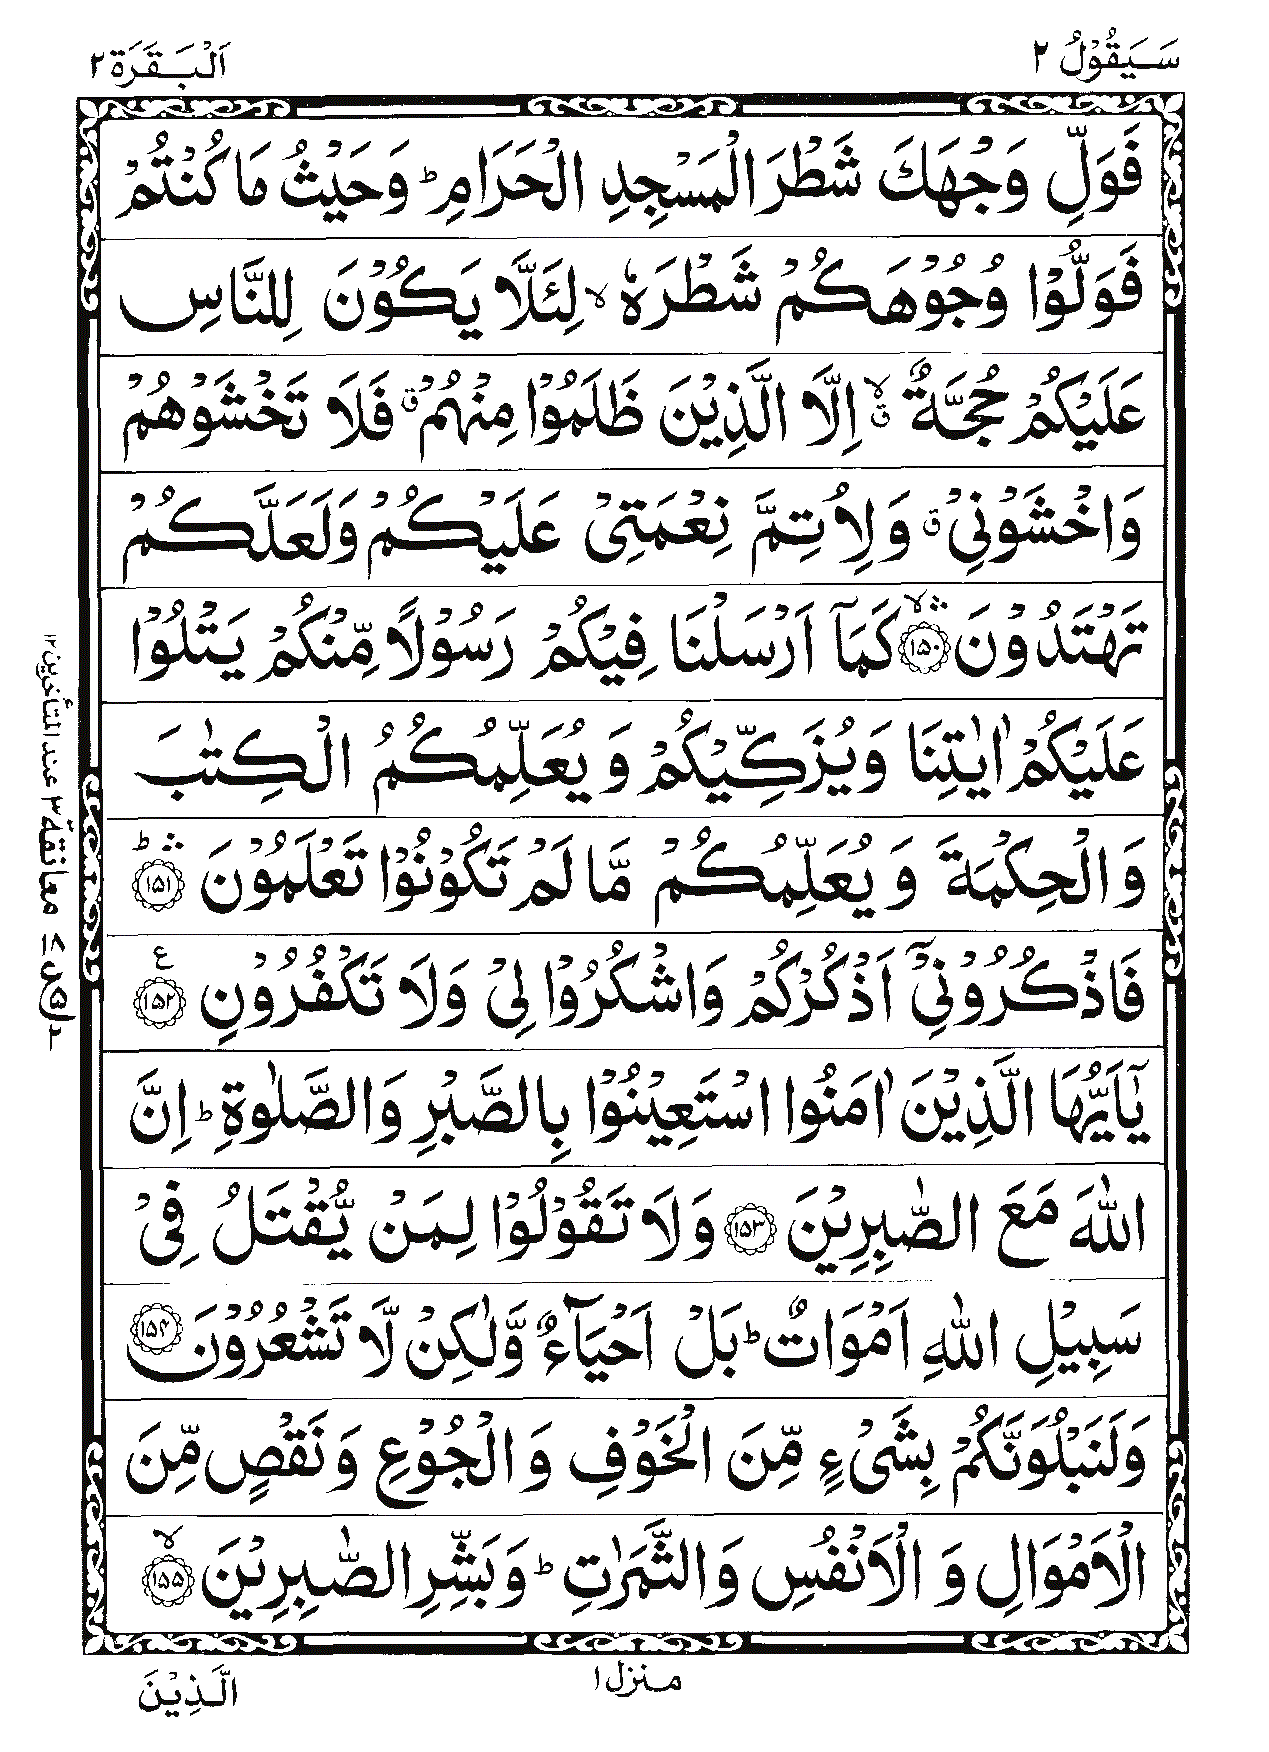 سَيَقُوْلُ ٢
اَلْبَقَرَة ٢
فَوَلِّ وَجْهَكَ شَطْرَ الْمَسْجِدِ الْحَرَامِ ؕ وَحَيْثُ مَا كُنْتُمْ
فَوَلُّوْا وُجُوْهَكُمْ شَطْرَهٗ ۙ لِئَلَّا يَكُوْنَ لِلنَّاسِ
عَلَيْكُمْ حُجَّةٌ ۙۗ اِلَّا الَّذِيْنَ ظَلَمُوْا مِنْهُمْ ۗ فَلَا تَخْشَوْهُمْ
وَاخْشَوْنِيْ ۗ وَلِاُتِمَّ نِعْمَتِيْ عَلَيْكُمْ وَلَعَلَّكُمْ
تَهْتَدُوْنَ ۛۙ ﴿١٥٠﴾ كَمَآ اَرْسَلْنَا فِيْكُمْ رَسُوْلًا مِّنْكُمْ يَتْلُوْا
عَلَيْكُمْ اٰيٰتِنَا وَيُزَكِّيْكُمْ وَيُعَلِّمُكُمُ الْكِتٰبَ
وَالْحِكْمَةَ وَيُعَلِّمُكُمْ مَّا لَمْ تَكُوْنُوْا تَعْلَمُوْنَ ۛؕ ﴿١٥١﴾
فَاذْكُرُوْنِيْٓ اَذْكُرْكُمْ وَاشْكُرُوْا لِيْ وَلَا تَكْفُرُوْنِ ع ﴿١٥٢﴾
يٰٓاَيُّهَا الَّذِيْنَ اٰمَنُوا اسْتَعِيْنُوْا بِالصَّبْرِ وَالصَّلٰوةِ ؕ اِنَّ
اللّٰهَ مَعَ الصّٰبِرِيْنَ ﴿١٥٣﴾ وَلَا تَقُوْلُوْا لِمَنْ يُّقْتَلُ فِيْ
سَبِيْلِ اللّٰهِ اَمْوَاتٌ ؕ بَلْ اَحْيَآءٌ وَّلٰكِنْ لَّا تَشْعُرُوْنَ ﴿١٥٤﴾
وَلَنَبْلُوَنَّكُمْ بِشَيْءٍ مِّنَ الْخَوْفِ وَالْجُوْعِ وَنَقْصٍ مِّنَ
الْاَمْوَالِ وَالْاَنْفُسِ وَالثَّمَرٰتِ ؕ وَبَشِّرِ الصّٰبِرِيْنَ ۙ ﴿١٥٥﴾
منزل ١
الَّذِيْنَ
معانقة ٣ عند المتأخرين ١٢